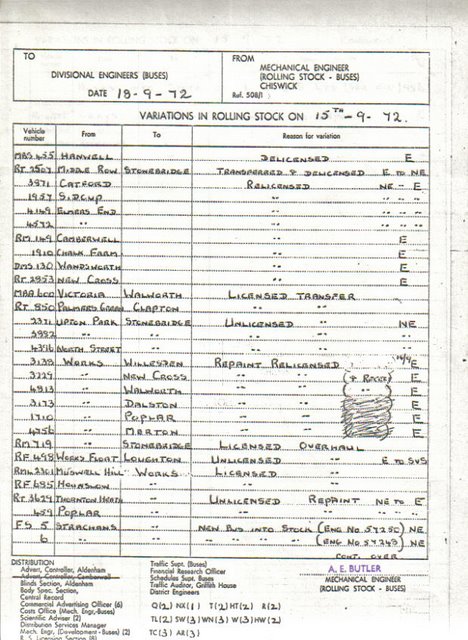 TO
DIVISIONAL ENGINEERS (BUSES)
DATE 18-9-72
FROM
MECHANICAL ENGINEER
(ROLLING STOCK - BUSES)
CHISWICK
Ref. 508/1
VARIATIONS IN ROLLING STOCK ON 15TH-9-72.
Vehicle number From To Reason for variation
MBS 455 HANWELL DELICENSED E
RT 2507 MIDDLE ROW STONEBRIDGE TRANSFERRED & DELICENSED E TO NE
3971 CATFORD RELICENSED NE - E
1957 SIDCUP " " " "
4149 ELMERS END " " " "
4572 " " " " "
RM 149 CAMBERWELL " E
1910 CHALK FARM " E
DMS 130 WANDSWORTH " E
RT 2953 NEW CROSS " E
MBA 600 VICTORIA WALWORTH LICENSED TRANSFER
RT 850 PALMERS GREEN CLAPTON " "
2371 UPTON PARK STONEBRIDGE UNLICENSED " NE
3992 " " " "
4396 NORTH STREET " " "
3139 WORKS WILLESDEN REPAINT RELICENSED E
3229 " NEW CROSS " " E
4913 " WALWORTH " " E
3173 " DALSTON " " E
1710 " POPLAR " " E
4756 " MERTON " " E
RM 719 " STONEBRIDGE LICENSED OVERHAUL
RF 498 WORKS FLOAT LOUGHTON UNLICENSED " E TO SVS
RML 2301 MUSWELL HILL WORKS LICENSED "
RF 695 HOUNSLOW " " "
RT 3629 THORNTON HEATH " UNLICENSED REPAINT NE TO E
459 POPLAR " " "
FS 5 STRACHANS NEW BUS INTO STOCK (ENG NO 57250) NE
6 " " " " " (ENG NO 57249) NE
CONT. OVER
DISTRIBUTION
Advert, Controller, Aldenham
Advert, Controller, Camberwell
Blinds Section, Aldenham
Body Spec. Section,
Central Record
Commercial Advertising Officer (6)
Costs Office (Mech. Engr.-Buses)
Scientific Adviser (2)
Distribution Services Manager
Mech. Engr. (Development - Buses) (2)
R. S. Licensing Section (8)
Traffic Supt. (Buses)
Financial Research Officer
Schedules Supt. Buses
Traffic Auditor, Griffith House
District Engineers
Q(2) NX(1) T(2) HT(2) R(2)
TL(2) SW(3) WN(3) W(3) HW(2)
TC(3) AR(3)
A. E. BUTLER
MECHANICAL ENGINEER
(ROLLING STOCK - BUSES)